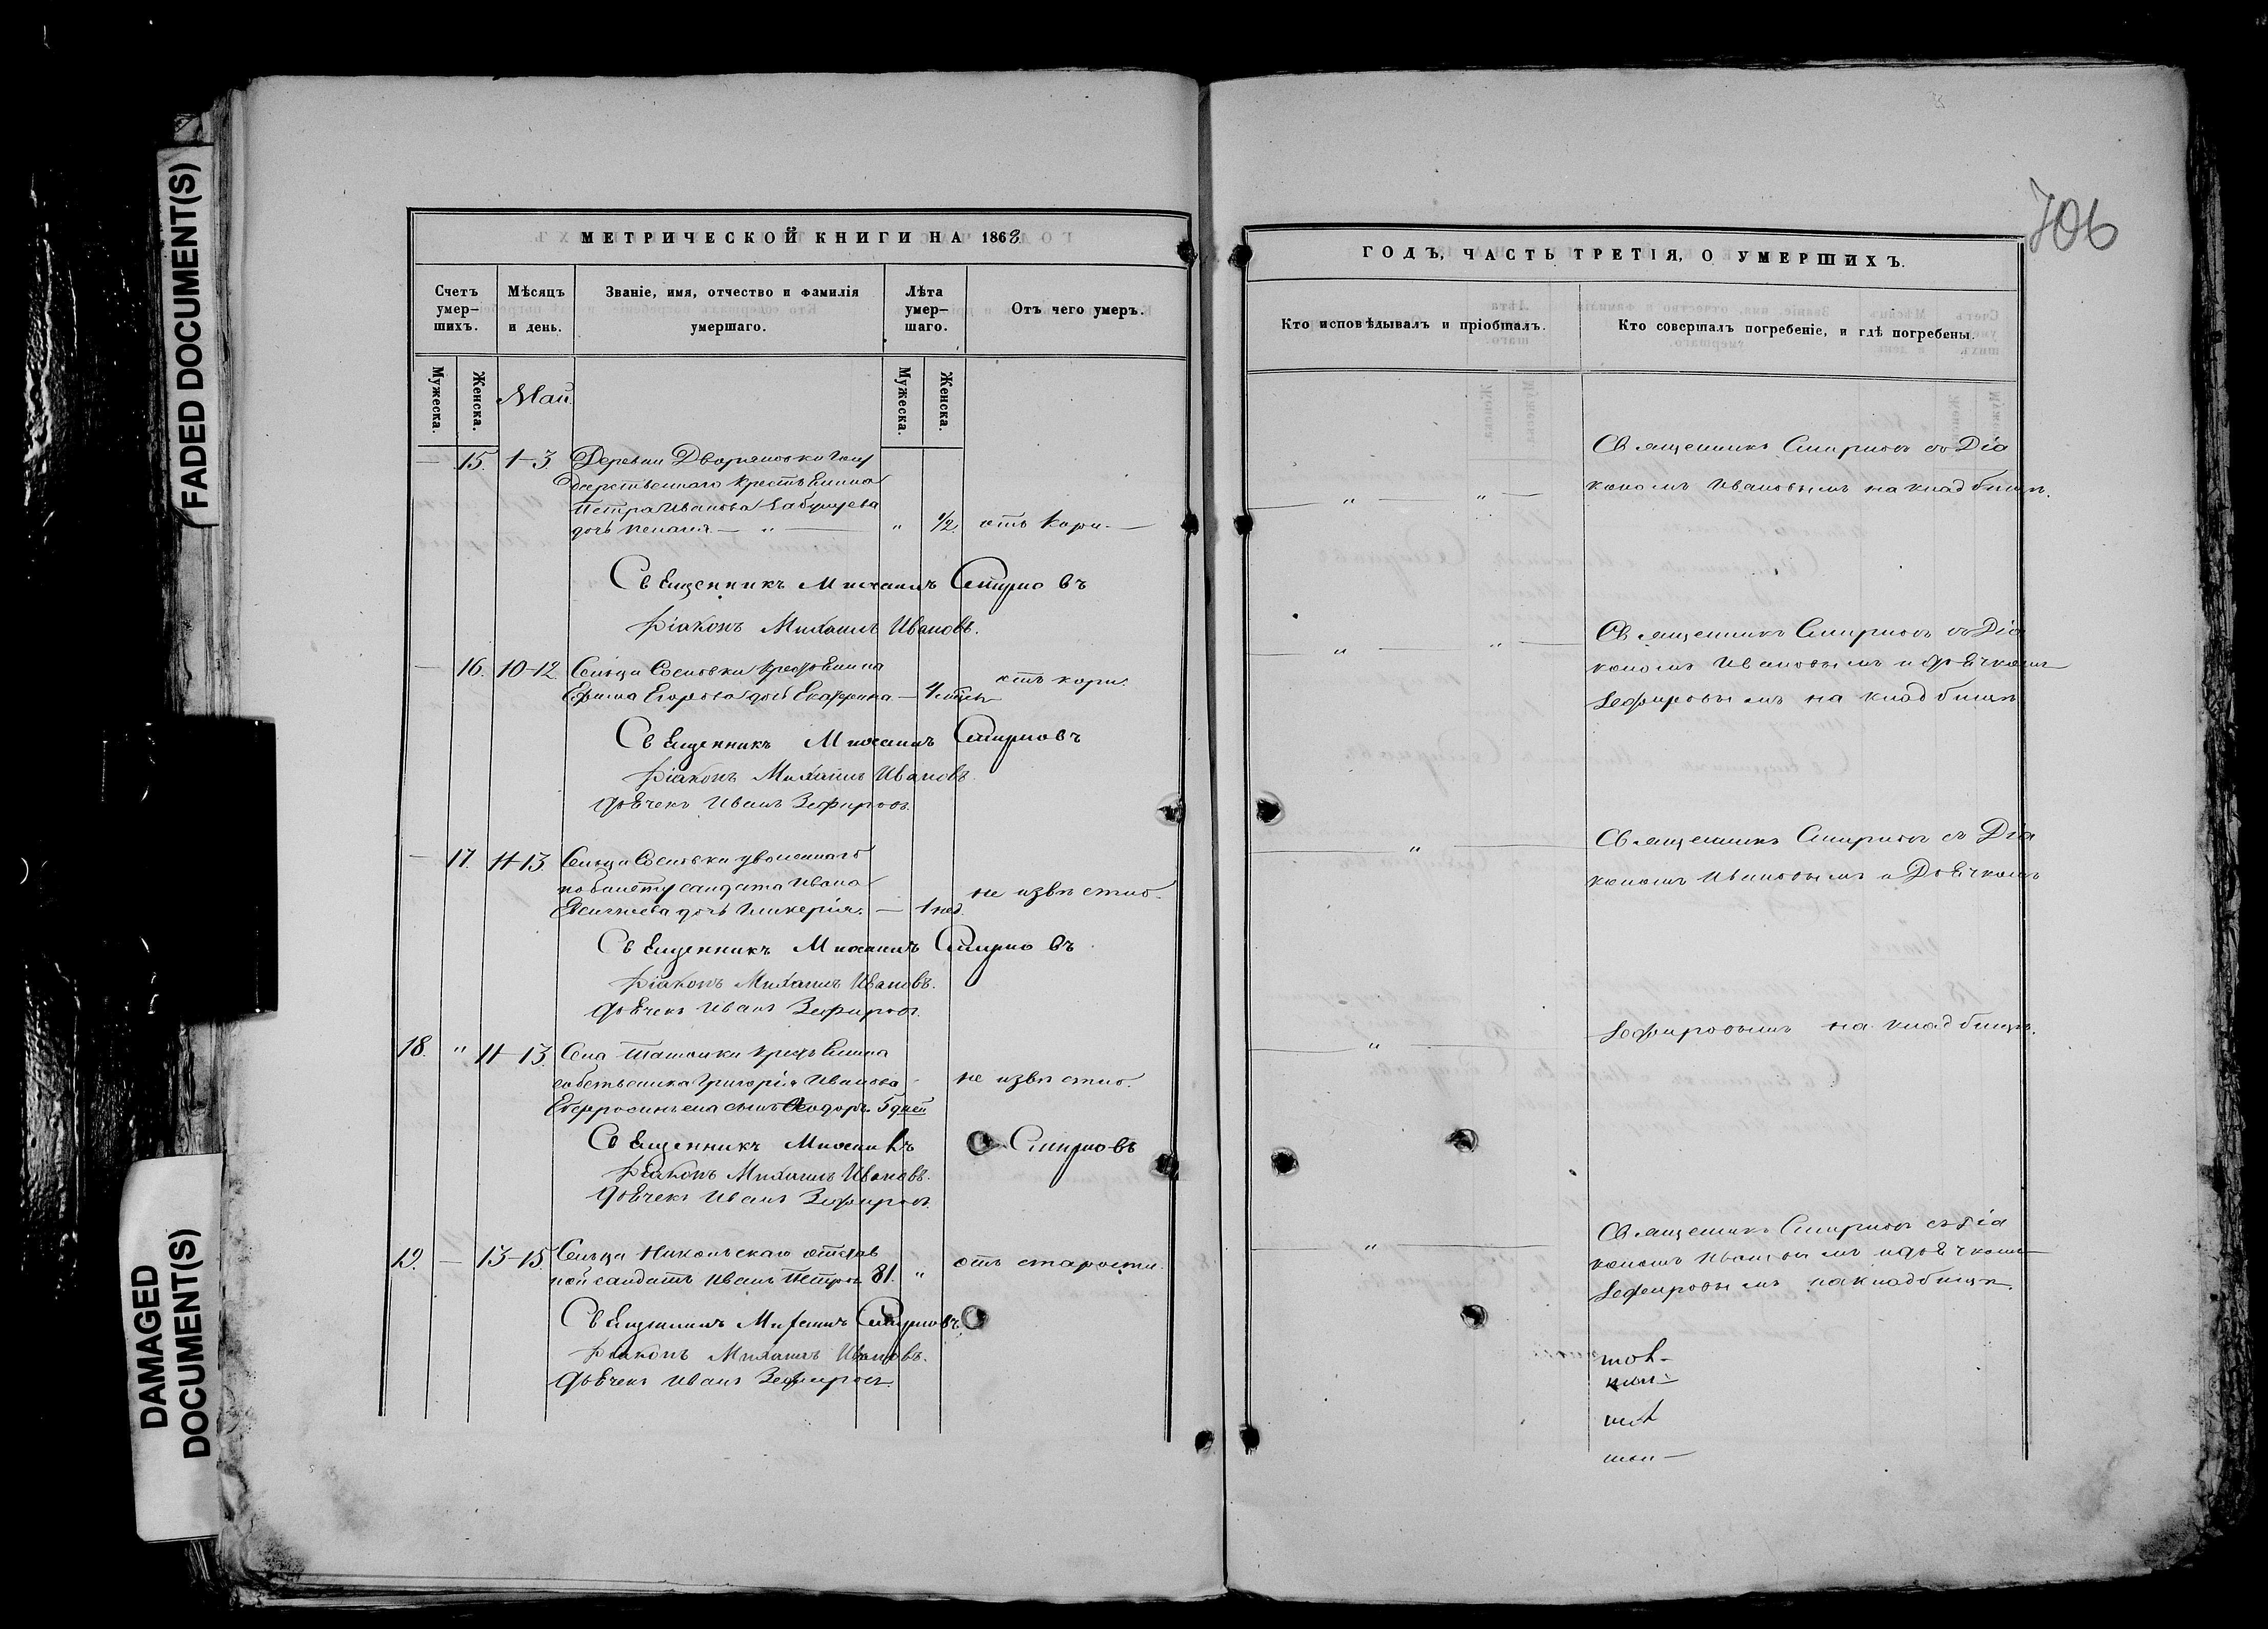 FADED DOCUMENT(S)
DAMAGED
DOCUMENT(S)
МЕТРИЧЕСКОЙ КНИГИ НА 1868
Счетъ умер–шихъ.
Мѣсяцъ и день.
Званіе, имя, отчество и фамилія умершаго.
Лѣта умер–шаго.
Отъ чего умеръ.
Мужеска.
Женска.
Май
Мужеска.
Женска.
— 15. 1–3 Деревни Дворяновки Госу
дарственнаго крестьянина
Петра Иванова
дочь — " — " ½ отъ кори. —
Священникъ Михаилъ Смирновъ
Діаконъ Михаилъ Ивановъ.
— 16. 10–12. Сельца Сосновки крестьянина
Ефима Егорова дочь — 4 отъ кори.
Священникъ Михаилъ Смирновъ
Діаконъ Михаилъ Ивановъ.
Дьячекъ Иванъ Зефировъ.
— 17. 11–13. Сельца Сосновки уволеннаго
по билету солдата Ивана
дочь Гликерія. — 1 нед. не извѣстно.
Священникъ Михаилъ Смирновъ
Діаконъ Михаилъ Ивановъ.
Дьячекъ Иванъ Зефировъ.
18. " 11–13. Села крестьянина
собственника Григорія Иванова не извѣстно.
сынъ Ѳеодоръ. 5 дней
Священникъ Михаилъ Смирновъ
Діаконъ Михаилъ Ивановъ.
Дьячекъ Иванъ Зефировъ.
19. — 13–15. Сельца Никольскаго отстав
ной солдатъ Иванъ Петровъ 81. " отъ старости.
Священникъ Михаилъ Смирновъ.
Діаконъ Михаилъ Ивановъ.
Дьячекъ Иванъ Зефировъ.
706
ГОДЪ, ЧАСТЬ ТРЕТІЯ, О УМЕРШИХЪ.
Кто исповѣдывалъ и пріобщалъ.
Кто совершалъ погребеніе, и гдѣ погребены.
Священникъ Смирновъ съ Діа
— " — " — кономъ Ивановымъ на кладбищѣ.
Священникъ Смирновъ съ Діа
— " — " — кономъ Ивановымъ и дьячкомъ
Зефировымъ на кладбищѣ
Священникъ Смирновъ съ Діа
— " — кономъ Ивановымъ и Дьячкомъ
Зефировымъ на кладбищѣ.
— " —
Священникъ Смирновъ съ діа
— " — кономъ Ивановымъ и дьячкомъ
Зефировымъ на кладбищѣ.